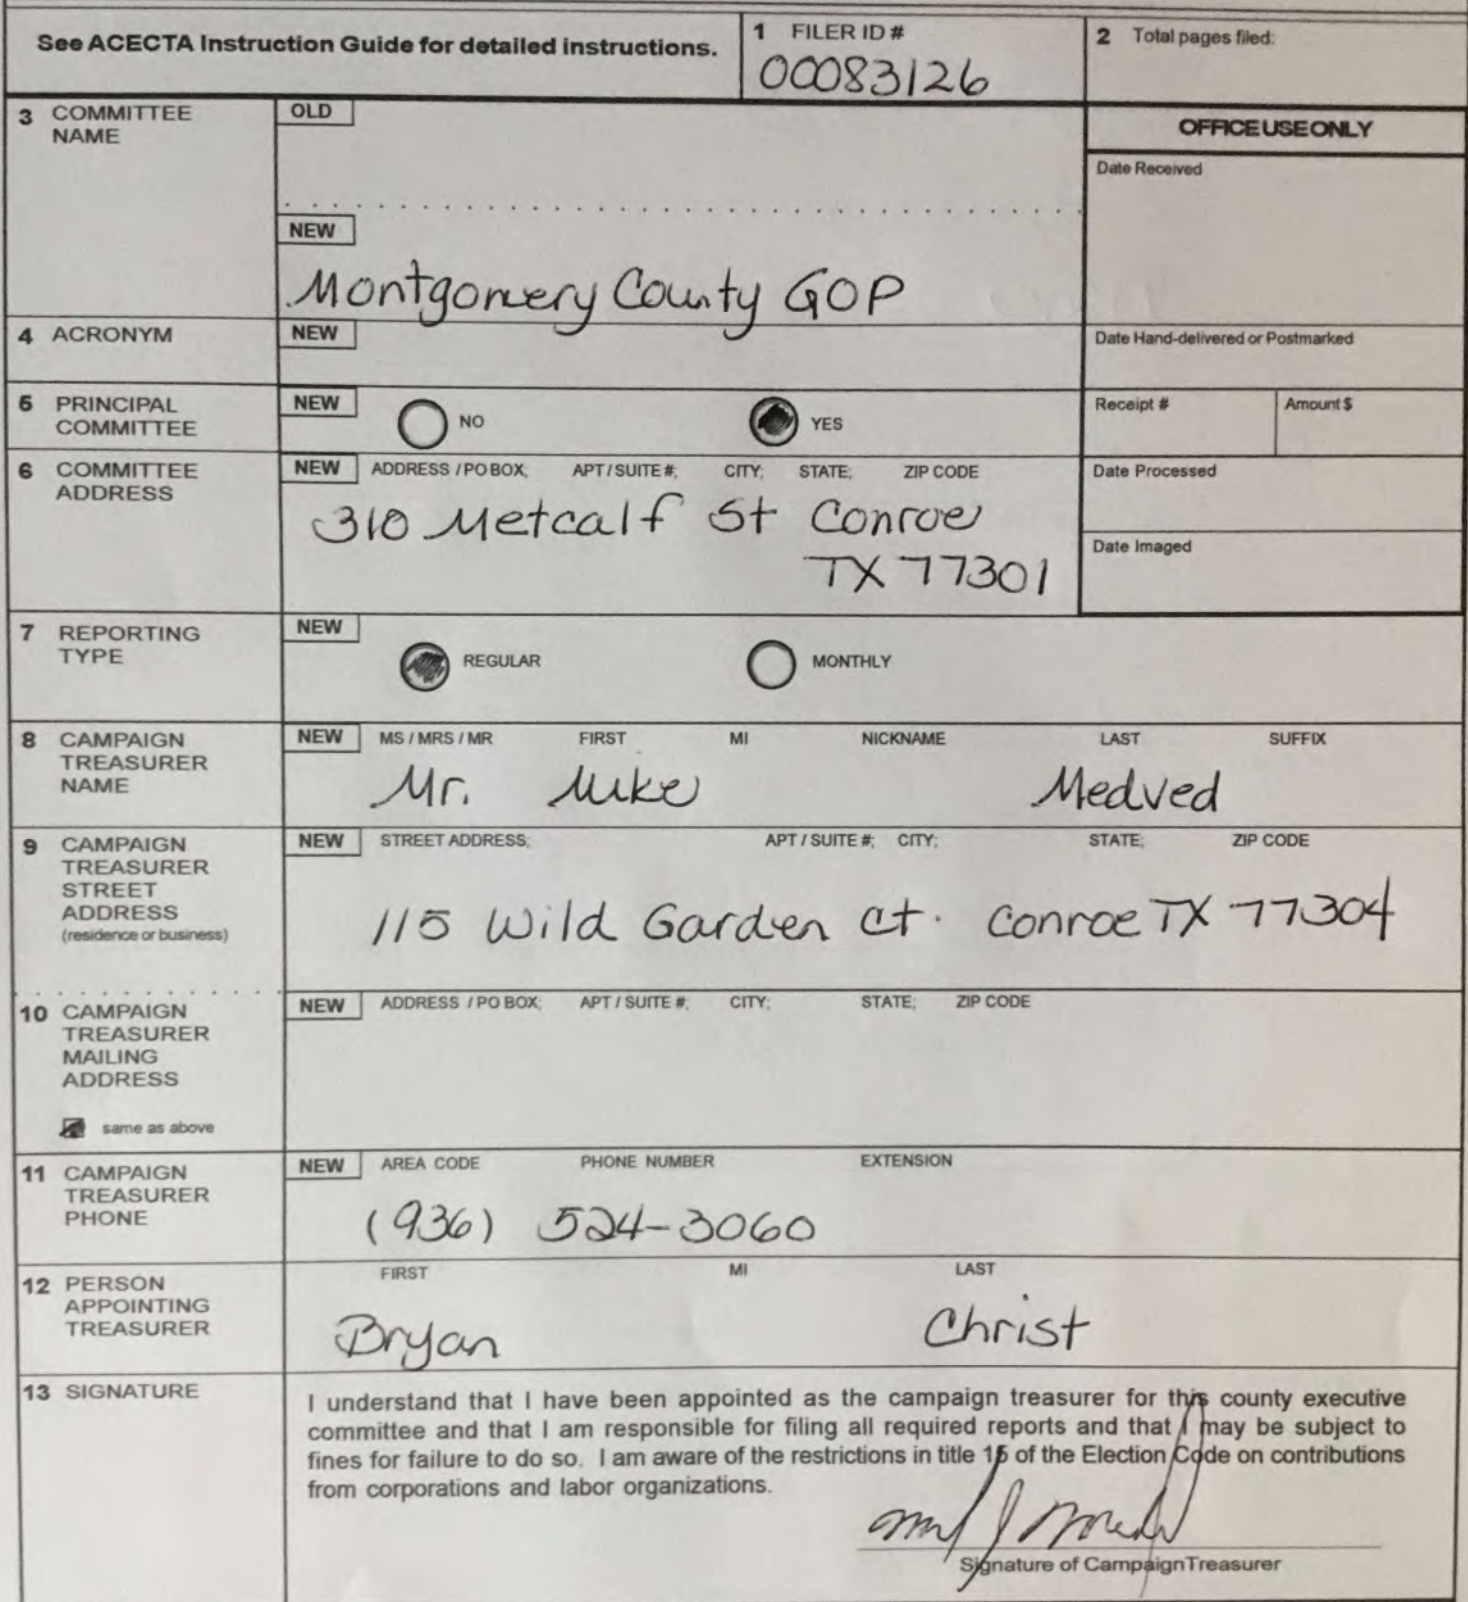 See ACECTA Instruction Guide for detailed instructions.
1 FILER ID #
00083126
2 Total pages filed:
3 COMMITTEE
NAME
OLD
NEW
Montgomery County GOP
OFFICE USE ONLY
Date Received
4 ACRONYM
NEW
Date Hand-delivered or Postmarked
5 PRINCIPAL
COMMITTEE
NEW
NO
YES
Receipt #
Amount $
6 COMMITTEE
ADDRESS
NEW ADDRESS / PO BOX; APT / SUITE #; CITY; STATE; ZIP CODE
310 Metcalf St Conroe
TX 77301
Date Processed
Date Imaged
7 REPORTING
TYPE
NEW
REGULAR
MONTHLY
8 CAMPAIGN
TREASURER
NAME
NEW MS / MRS / MR FIRST MI NICKNAME LAST SUFFIX
Mr. Mike Medved
9 CAMPAIGN
TREASURER
STREET
ADDRESS
(residence or business)
NEW STREET ADDRESS; APT / SUITE #; CITY; STATE; ZIP CODE
115 Wild Garden Ct. Conroe TX 77304
10 CAMPAIGN
TREASURER
MAILING
ADDRESS
same as above
NEW ADDRESS / PO BOX; APT / SUITE #; CITY; STATE; ZIP CODE
11 CAMPAIGN
TREASURER
PHONE
NEW AREA CODE PHONE NUMBER EXTENSION
(936) 524-3060
12 PERSON
APPOINTING
TREASURER
FIRST MI LAST
Bryan Christ
13 SIGNATURE
I understand that I have been appointed as the campaign treasurer for this county executive
committee and that I am responsible for filing all required reports and that I may be subject to
fines for failure to do so. I am aware of the restrictions in title 15 of the Election Code on contributions
from corporations and labor organizations.
Signature of Campaign Treasurer